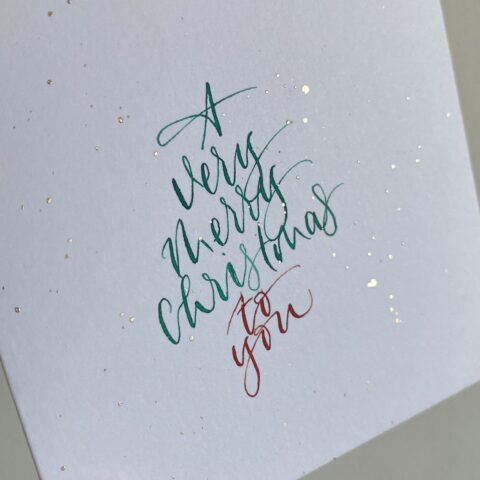 A
very
merry
christmas
to
you